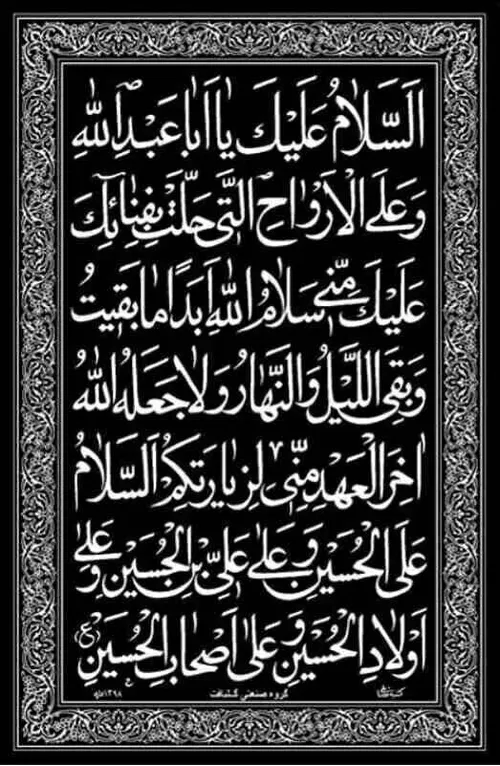 اَلسَّلامُ عَلَيْكَ يا اَباعَبْدِاللهِ
وَعَلَى الْاَرْواحِ الَّتى حَلَّتْ بِفِنائِكَ
عَلَيْكَ مِنّى سَلامُ اللهِ اَبَدًا ما بَقيتُ
وَبَقِىَ اللَّيْلُ وَالنَّهارُ وَلا جَعَلَهُ اللهُ
اخِرَ الْعَهْدِ مِنّى لِزِيارَتِكُمْ اَلسَّلامُ
عَلَى الْحُسَيْنِ وَعَلى عَلِىِّ بْنِ الْحُسَيْنِ وَعَلى
اَوْلادِ الْحُسَيْنِ وَعَلى اَصْحابِ الْحُسَيْنِ
گروه صنعتی گلبافت